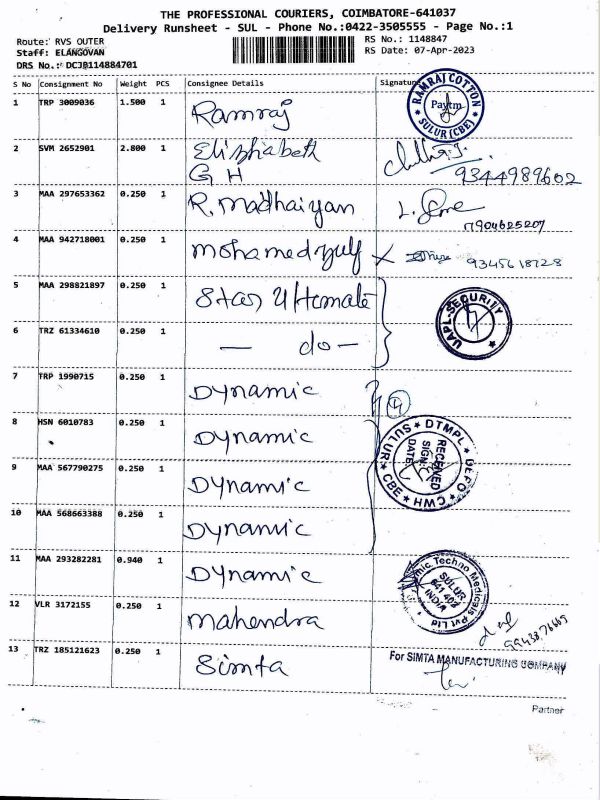 THE PROFESSIONAL COURIERS, COIMBATORE-641037
Delivery Runsheet - SUL - Phone No.:0422-3505555 - Page No.:1
Route: RVS OUTER RS No.: 1148847
Staff: ELANGOVAN RS Date: 07-Apr-2023
DRS No.: DCJB114884701
S No Consignment No Weight PCS Consignee Details Signature
1 TRP 3009036 1.500 1 Ramraj RAMRAJ COTTON Paytm SULUR (CBE)
2 SVM 2652901 2.800 1 Elizhabeth
G H 9344989602
3 MAA 297653362 0.250 1 R. Madhaiyan
7904625207
4 MAA 942718001 0.250 1 9345618728
5 MAA 298821897 0.250 1 Star UAPL-SECURITY
6 TRZ 61334610 0.250 1 — do —
7 TRP 1990715 0.250 1 Dynamic 4
8 HSN 6010783 0.250 1 Dynamic DTMPL DEPO CWH CBE SULUR
RECEIVED
SIGN:
DATE:
9 MAA 567790275 0.250 1 Dynamic
10 MAA 568663388 0.250 1 Dynamic
11 MAA 293282281 0.940 1 Dynamic Techno Medicals Pvt Ltd
SULUR
641 402
INDIA
12 VLR 3172155 0.250 1 Mahendra
13 TRZ 185121623 0.250 1 Simta For SIMTA MANUFACTURING COMPANY
Partner